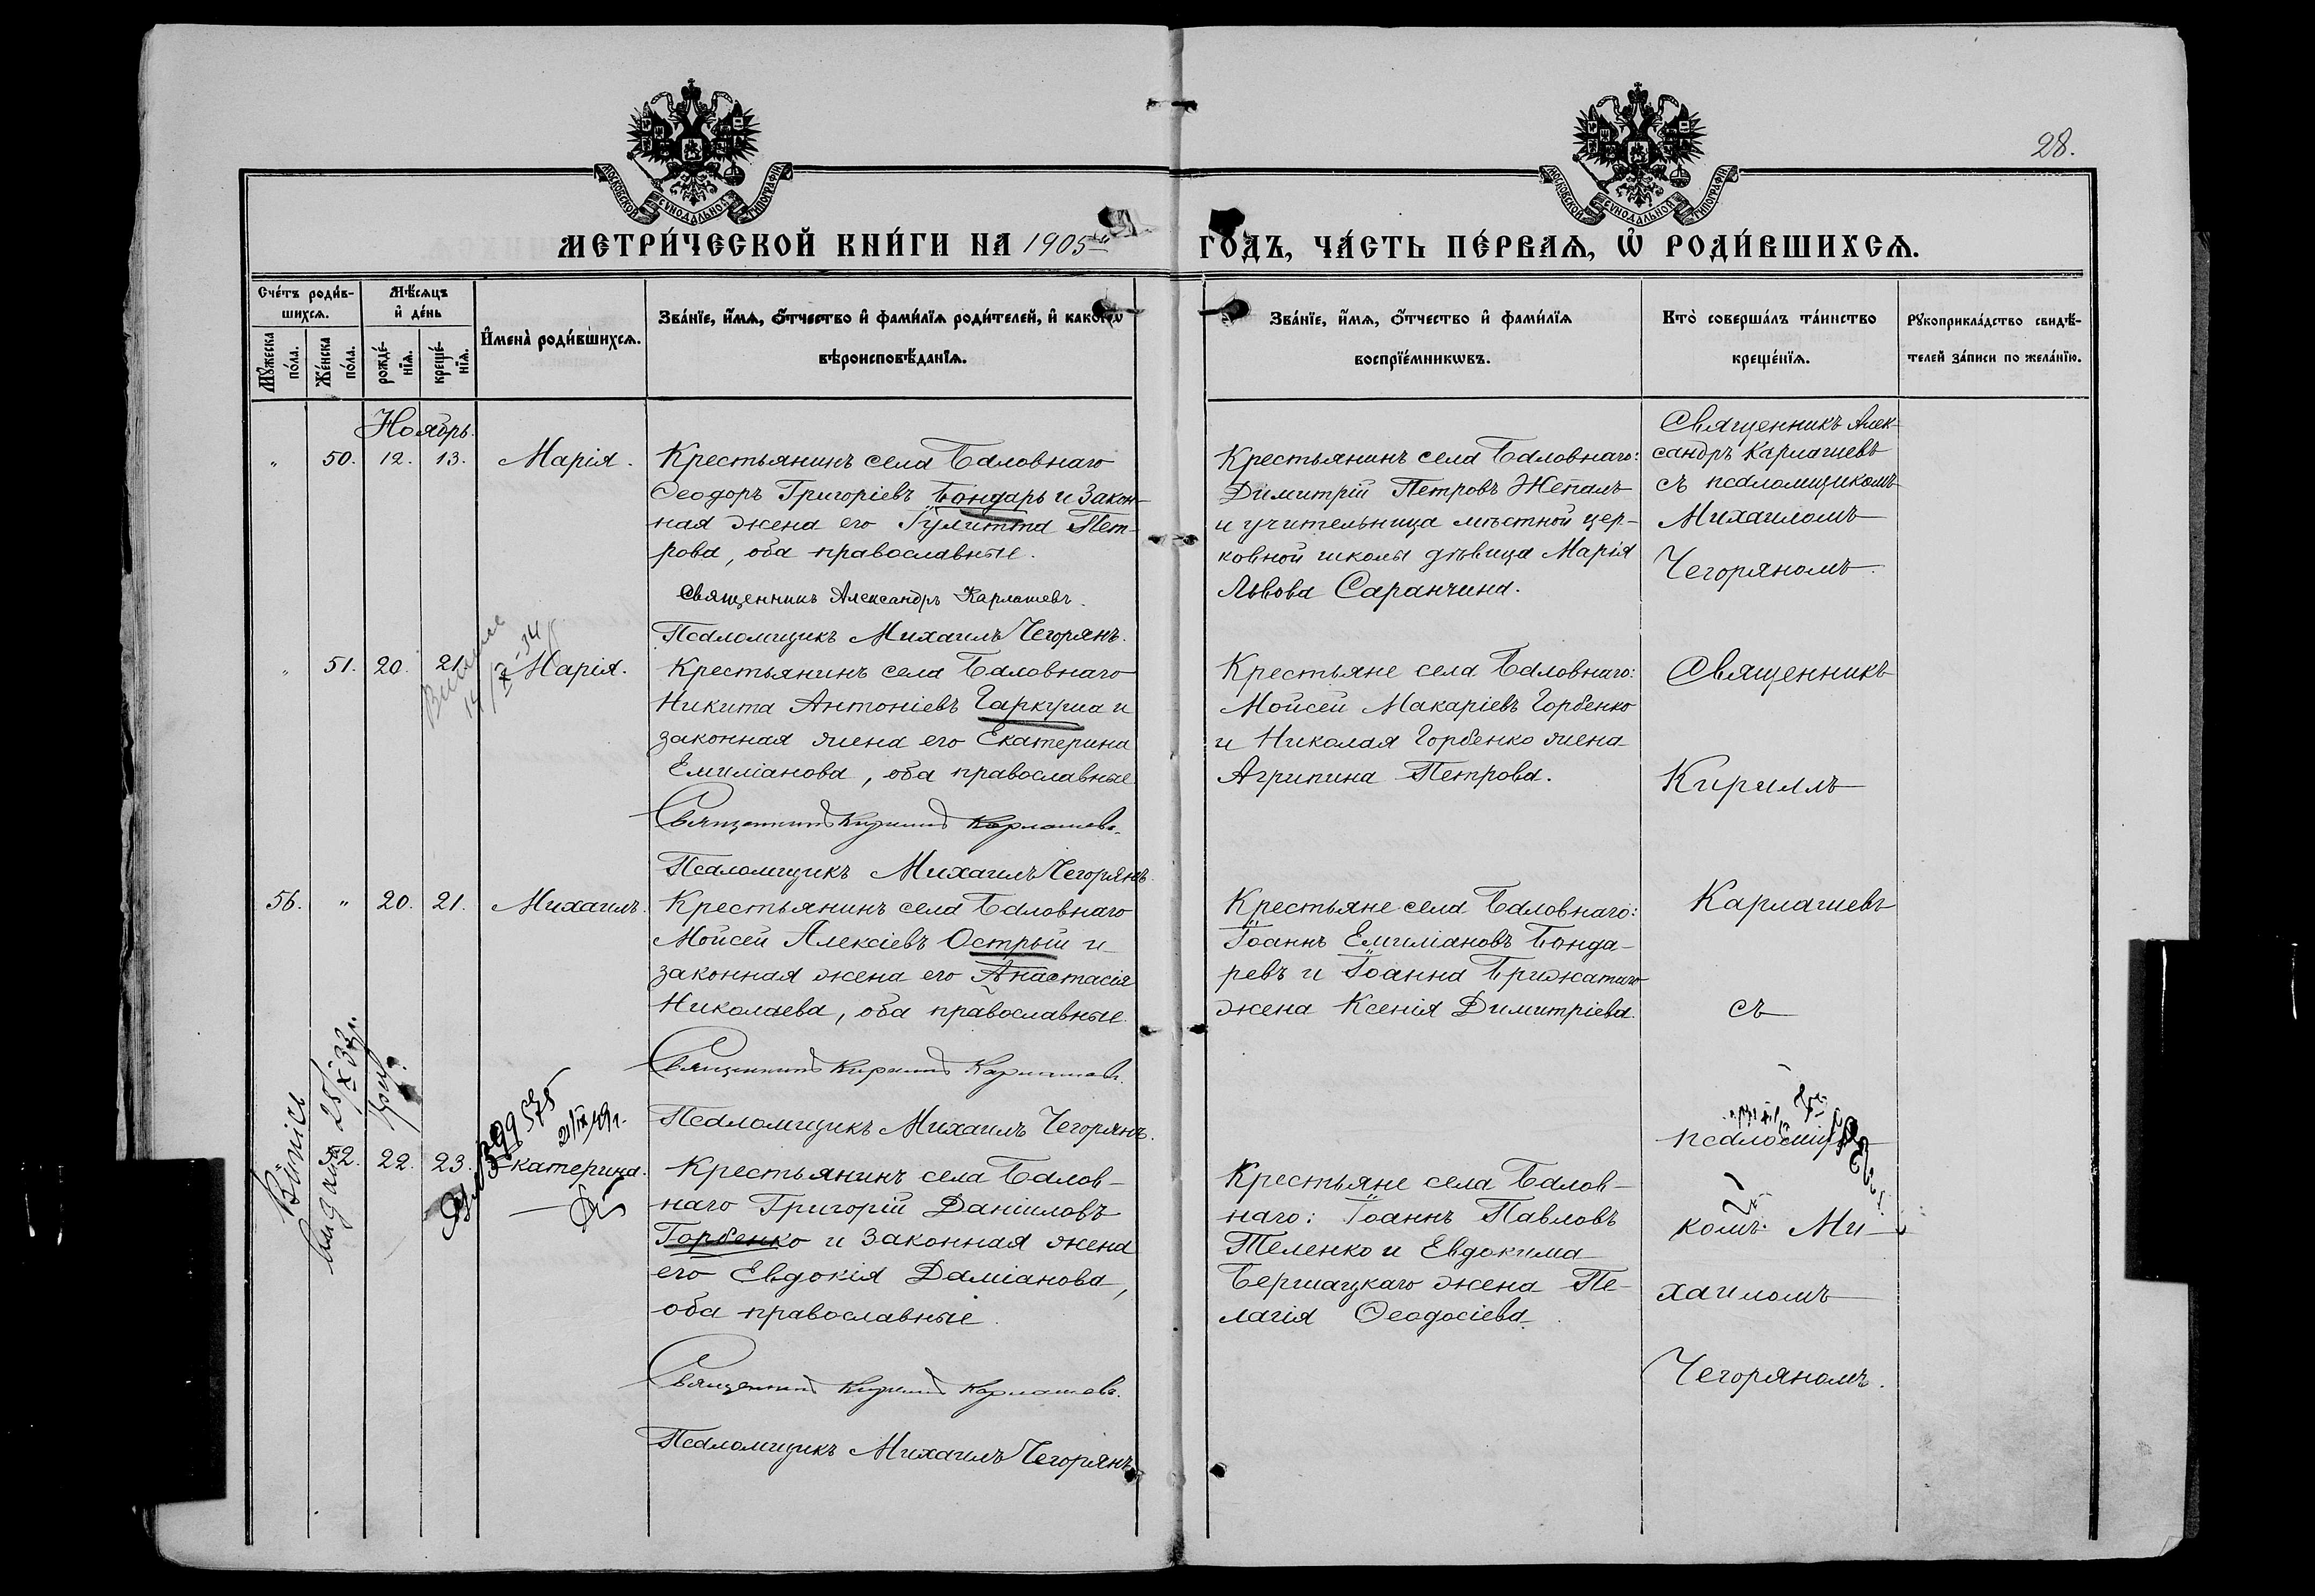 28.
МОСКОВСКОЙ СУНОДАЛЬНОЙ ТИПОГРАФІИ
МОСКОВСКОЙ СУНОДАЛЬНОЙ ТИПОГРАФІИ
МЕТРИ́ЧЕСКОЙ КНИ́ГИ НА 1905 й ГОДЪ, ЧА́СТЬ ПЕ́РВАѦ, Ѡ҆ РОДИ́ВШИХСѦ.
Сче́тъ роди́в-
шихсѧ.
Мꙋ́жеска по́ла.
Же́нска по́ла.
Мѣ́сѧцъ
и҆ де́нь
рожде́-
нїѧ.
креще́-
нїѧ.
И҆мена̀ роди́вшихсѧ.
Зва́нїе, и҆́мѧ, ѻ҆́тчество и҆ фами́лїѧ роди́телей, и҆ како́гѡ
вѣроисповѣ́данїѧ.
Зва́нїе, и҆́мѧ, ѻ҆́тчество и҆ фами́лїѧ
воспрїе́мникѡвъ.
Кто̀ соверша́лъ та́инство
креще́нїѧ.
Рꙋкоприкла́дство свидѣ́-
телей за́писи по жела́нїю.
Ноябрь.
" 50. 12. 13. Марія.
Крестьянинъ села Баловнаго
Ѳеодоръ Григоріевъ Бондарь и закон-
ная жена его Іулитта Пет-
рова, оба православные.
Священникъ Александръ Карлашевъ.
Псаломщикъ Михаилъ Чегорянъ.
Крестьянинъ села Баловнаго:
Димитрій Петровъ Жепалъ
и учительница мѣстной цер-
ковной школы дѣвица Марія
Львова Саранчина.
Священникъ Алек-
сандръ Карлашевъ
съ псаломщикомъ
Михаиломъ
Чегоряномъ.
" 51. 20. 21. Марія.
Крестьянинъ села Баловнаго
Никита Антоніевъ Гаркуша и
законная жена его Екатерина
Емиліанова, оба православные
Священникъ Кириллъ Карлашевъ.
Псаломщикъ Михаилъ Чегорянъ.
Крестьяне села Баловнаго:
Мойсей Макаріевъ Горбенко
и Николая Горбенко жена
Агрипина Петрова.
Священникъ
Кириллъ
56. " 20. 21. Михаилъ.
Крестьянинъ села Баловнаго
Мойсей Алексіевъ Острый и
законная жена его Анастасія
Николаева, оба православные.
Священникъ Кириллъ Карлашевъ.
Псаломщикъ Михаилъ Чегорянъ.
Крестьяне села Баловнаго:
Іоаннъ Емиліановъ Бонда-
ревъ и Іоанна Брижатаго
жена Ксенія Димитріева.
Карлашевъ
съ
52. 22. 23. Екатерина.
Крестьянинъ села Балов-
наго Григорій Даніиловъ
Горбенко и законная жена
его Евдокія Даміанова,
оба православные.
Священникъ Кириллъ Карлашевъ.
Псаломщикъ Михаилъ Чегорянъ.
Крестьяне села Балов-
наго: Іоаннъ Павловъ
Теленко и Евдокима
Бершацкаго жена Пе-
лагія Ѳеодосіева.
псаломщи-
комъ Ми-
хаиломъ
Чегоряномъ.